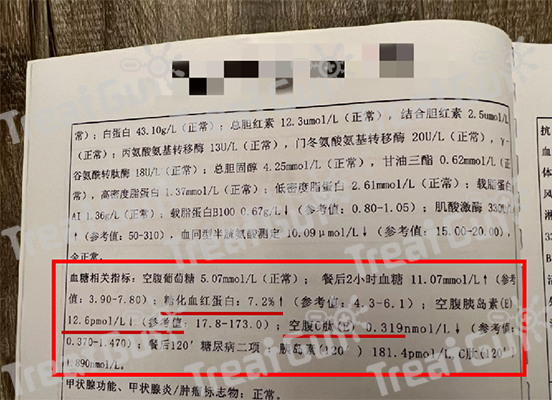 常）；白蛋白 43.10g/L（正常）；总胆红素 12.3umol/L（正常），结合胆红素 2.5umol/L
（正常）；丙氨酸氨基转移酶 13U/L（正常），门冬氨酸氨基转移酶 20U/L（正常），γ-
谷氨酰转肽酶 18U/L（正常）；总胆固醇 4.25mmol/L（正常），甘油三酯 0.62mmol/L（正
常），高密度脂蛋白 1.37mmol/L（正常）；低密度脂蛋白 2.61mmol/L（正常）；载脂蛋白
AI 1.36g/L（正常）；载脂蛋白B100 0.67g/L↓（参考值：0.80-1.05）；肌酸激酶 330U/L
↑（参考值：50-310），血同型半胱氨酸测定 10.09μmol/L↓（参考值：15.00-20.00），
余正常。
血糖相关指标：空腹葡萄糖 5.07mmol/L（正常）；餐后2小时血糖 11.07mmol/L↑（参考
值：3.90-7.80）；糖化血红蛋白：7.2%↑（参考值：4.3-6.1）；空腹胰岛素(E)
12.6pmol/L↓（参考值：17.8-173.0）；空腹C肽(E) 0.319nmol/L↓（参考值：
0.370-1.470）；餐后120’糖尿病二项：胰岛素(120’) 181.4pmol/L，C肽(120’)
1.890nmol/L。
甲状腺功能、甲状腺炎/肿瘤标志物：正常。
抗
血
TreatGut